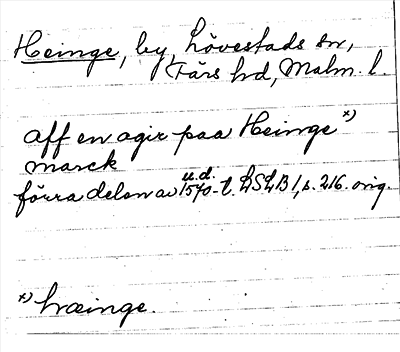 Heinge, by, Lövestads sn,
Färs hd, Malm. l.
aff en agir paa Heinge x)
marck
u.d.
förra delen av 1570-t. LSLB 1, s. 216. orig.
x) hæinge.